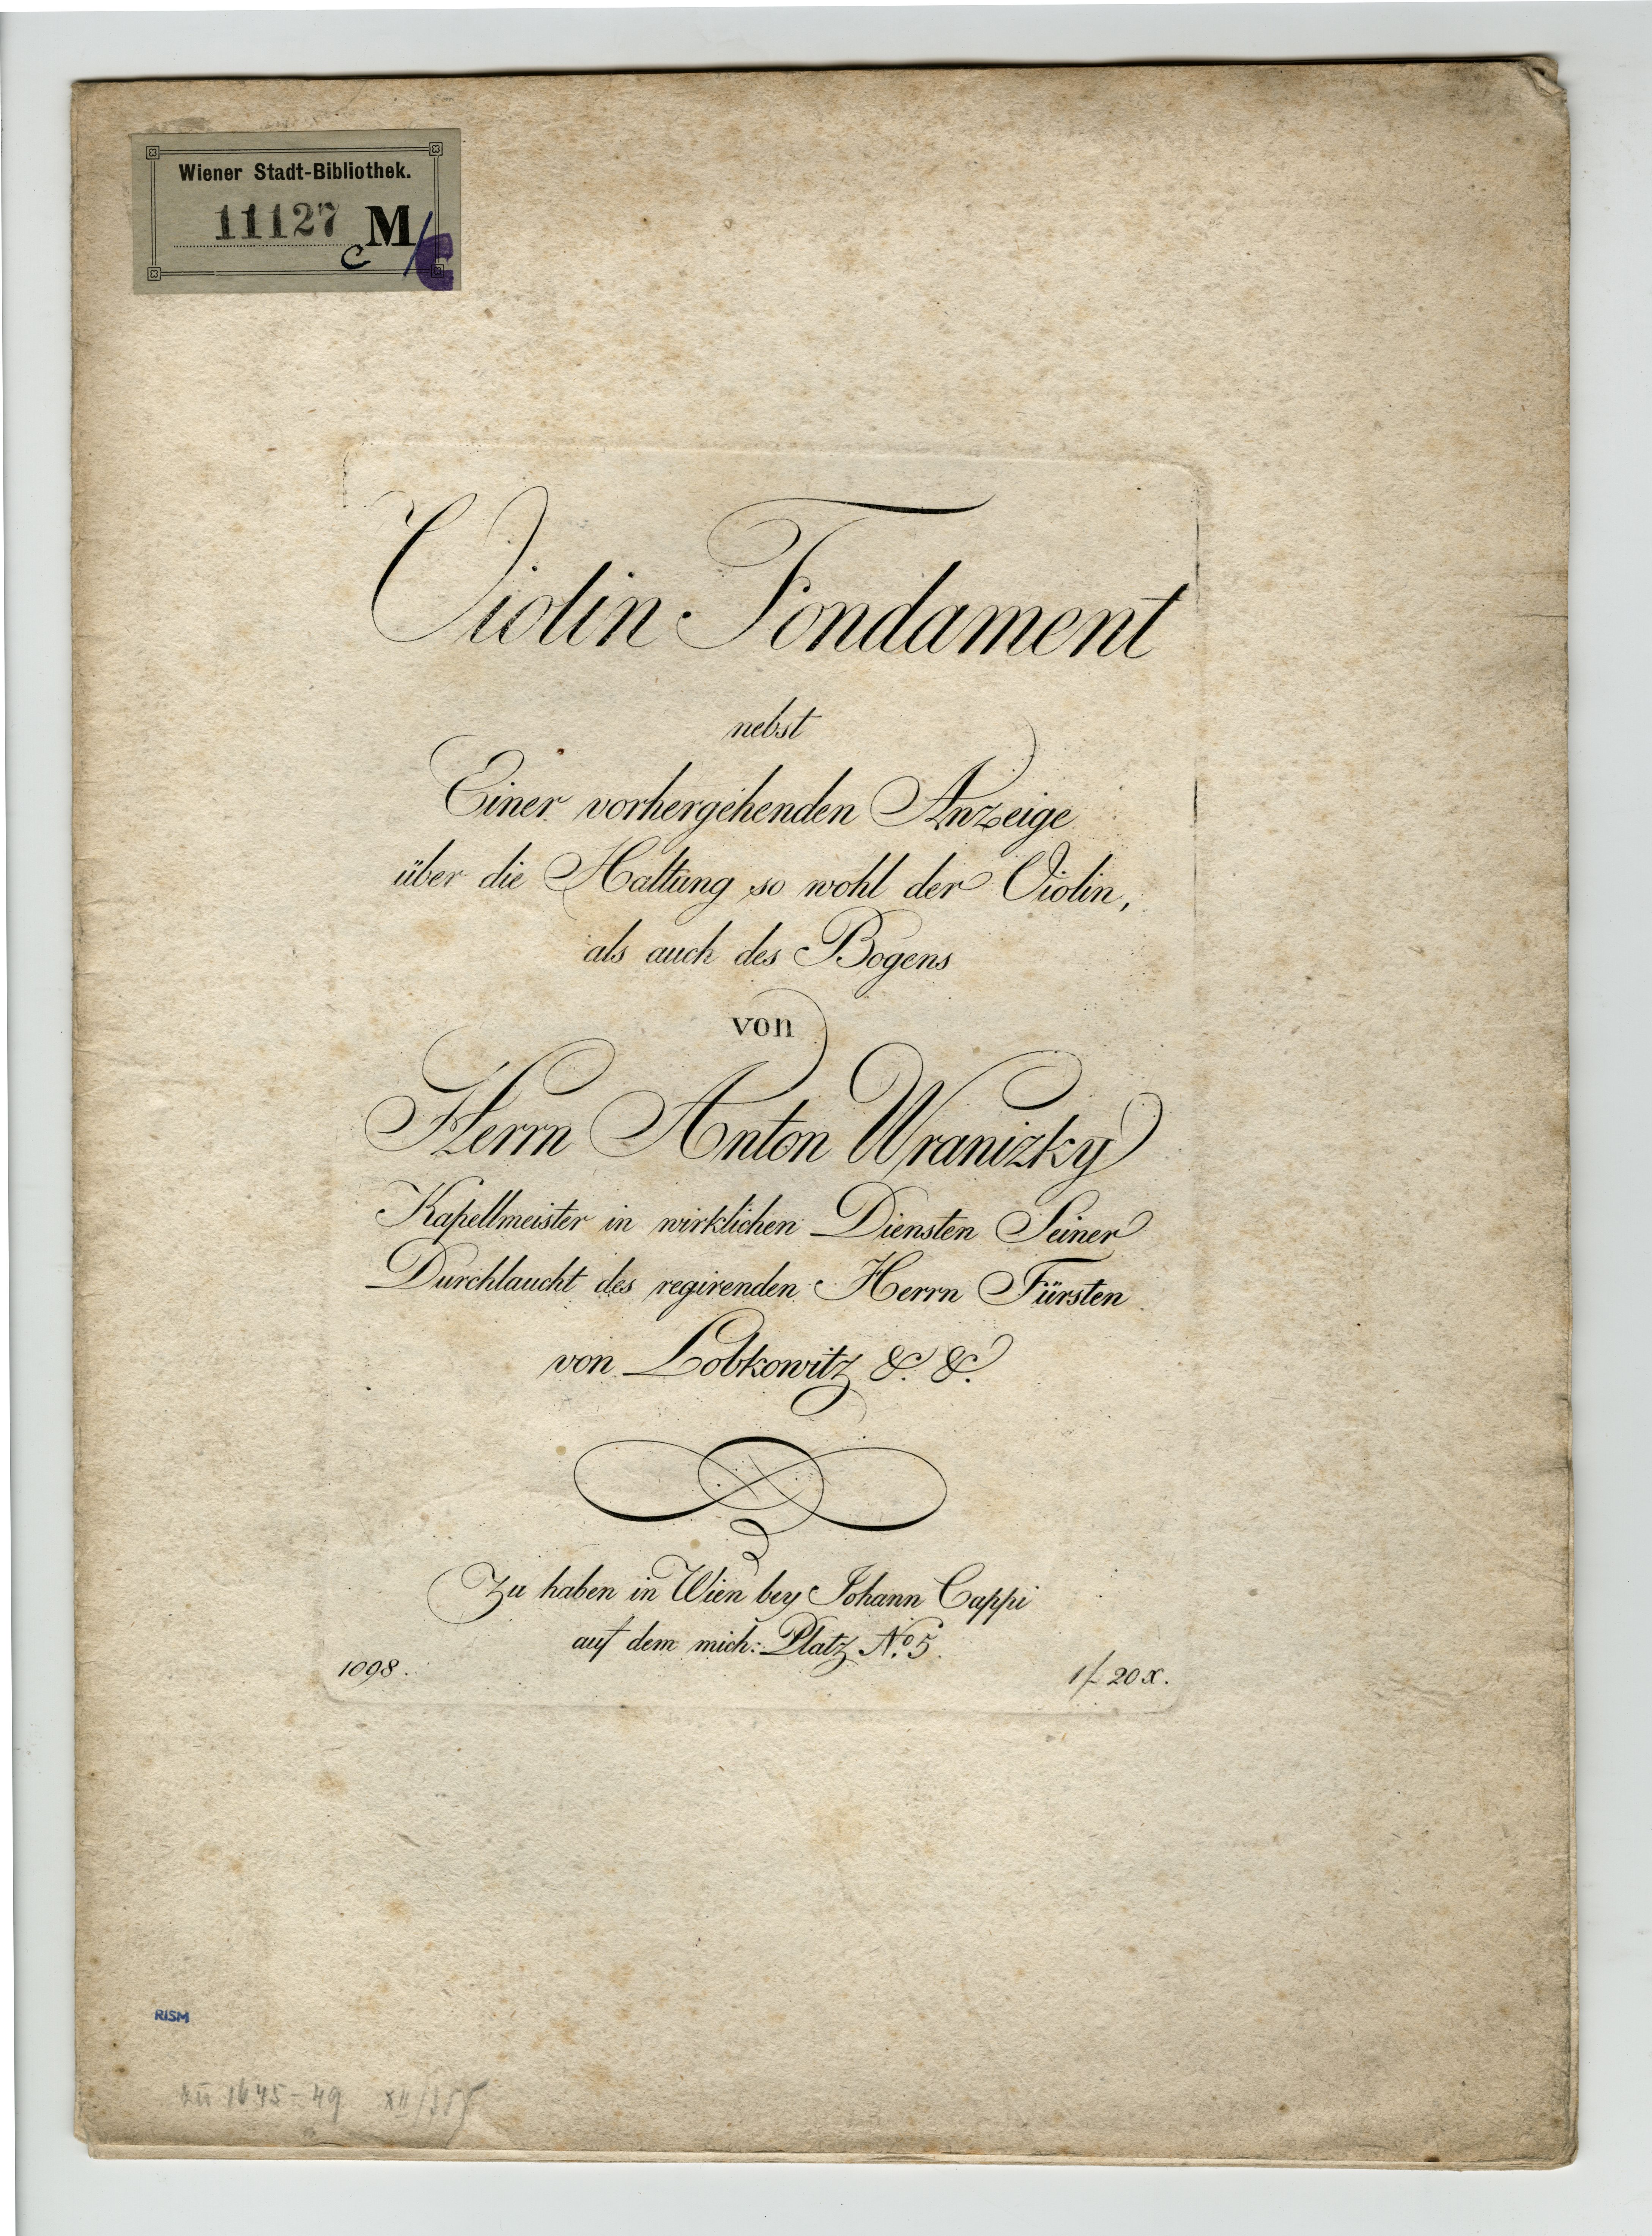 Wiener Stadt-Bibliothek.
11127 M/C
c
Violin Fondament
nebst
Einer vorhergehenden Anzeige
über die Haltung so wohl der Violin,
als auch des Bogens
von
Herrn Anton Wranizky
Kapellmeister in wirklichen Diensten Seiner
Durchlaucht des regirenden Herrn Fürsten
von Lobkowitz &. &.
Zu haben in Wien bey Johann Cappi
auf dem mich: Platz No. 5.
1098.
1f 20 x.
RISM
1645-49